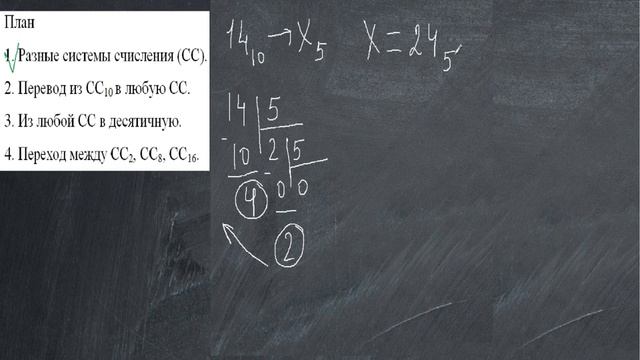 План
1. Разные системы счисления (СС).
2. Перевод из СС10 в любую СС.
3. Из любой СС в десятичную.
4. Переход между СС2, СС8, СС16.
14₁₀ → X₅ X = 24₅
14 | 5
- 10 2 | 5
4 - 0 0
2